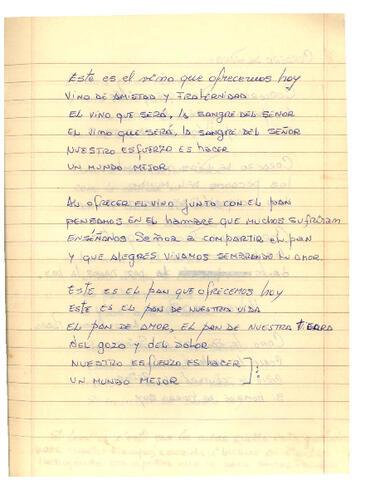 Este es el vino que ofrecemos hoy
VINO DE AMISTAD Y FRATERNIDAD
EL VINO QUE SERÁ, LA SANGRE DEL SEÑOR
EL VINO QUE SERÁ, LA SANGRE DEL SEÑOR
NUESTRO ESFUERZO ES HACER
UN MUNDO MEJOR
AL OFRECER EL VINO JUNTO CON EL PAN
PENSAMOS EN EL HAMBRE QUE MUCHOS SUFRIRAN
ENSÉÑANOS SEÑOR A COMPARTIR EL PAN
Y QUE ALEGRES VIVAMOS SEMBRANDO tu AMOR.
Este es el PAN QUE OFRECEMOS Hoy
ESTE ES EL PAN DE NUESTRA VIDA
EL PAN DE AMOR, EL PAN DE NUESTRA TIERRA
DEL GOZO Y DEL DOLOR
NUESTRO ESFUERZO ES HACER
UN MUNDO MEJOR